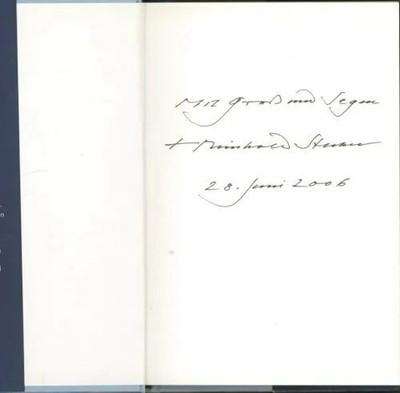 Mit Gruß und Segen
+ Reinhold Stecher
28. Juni 2006